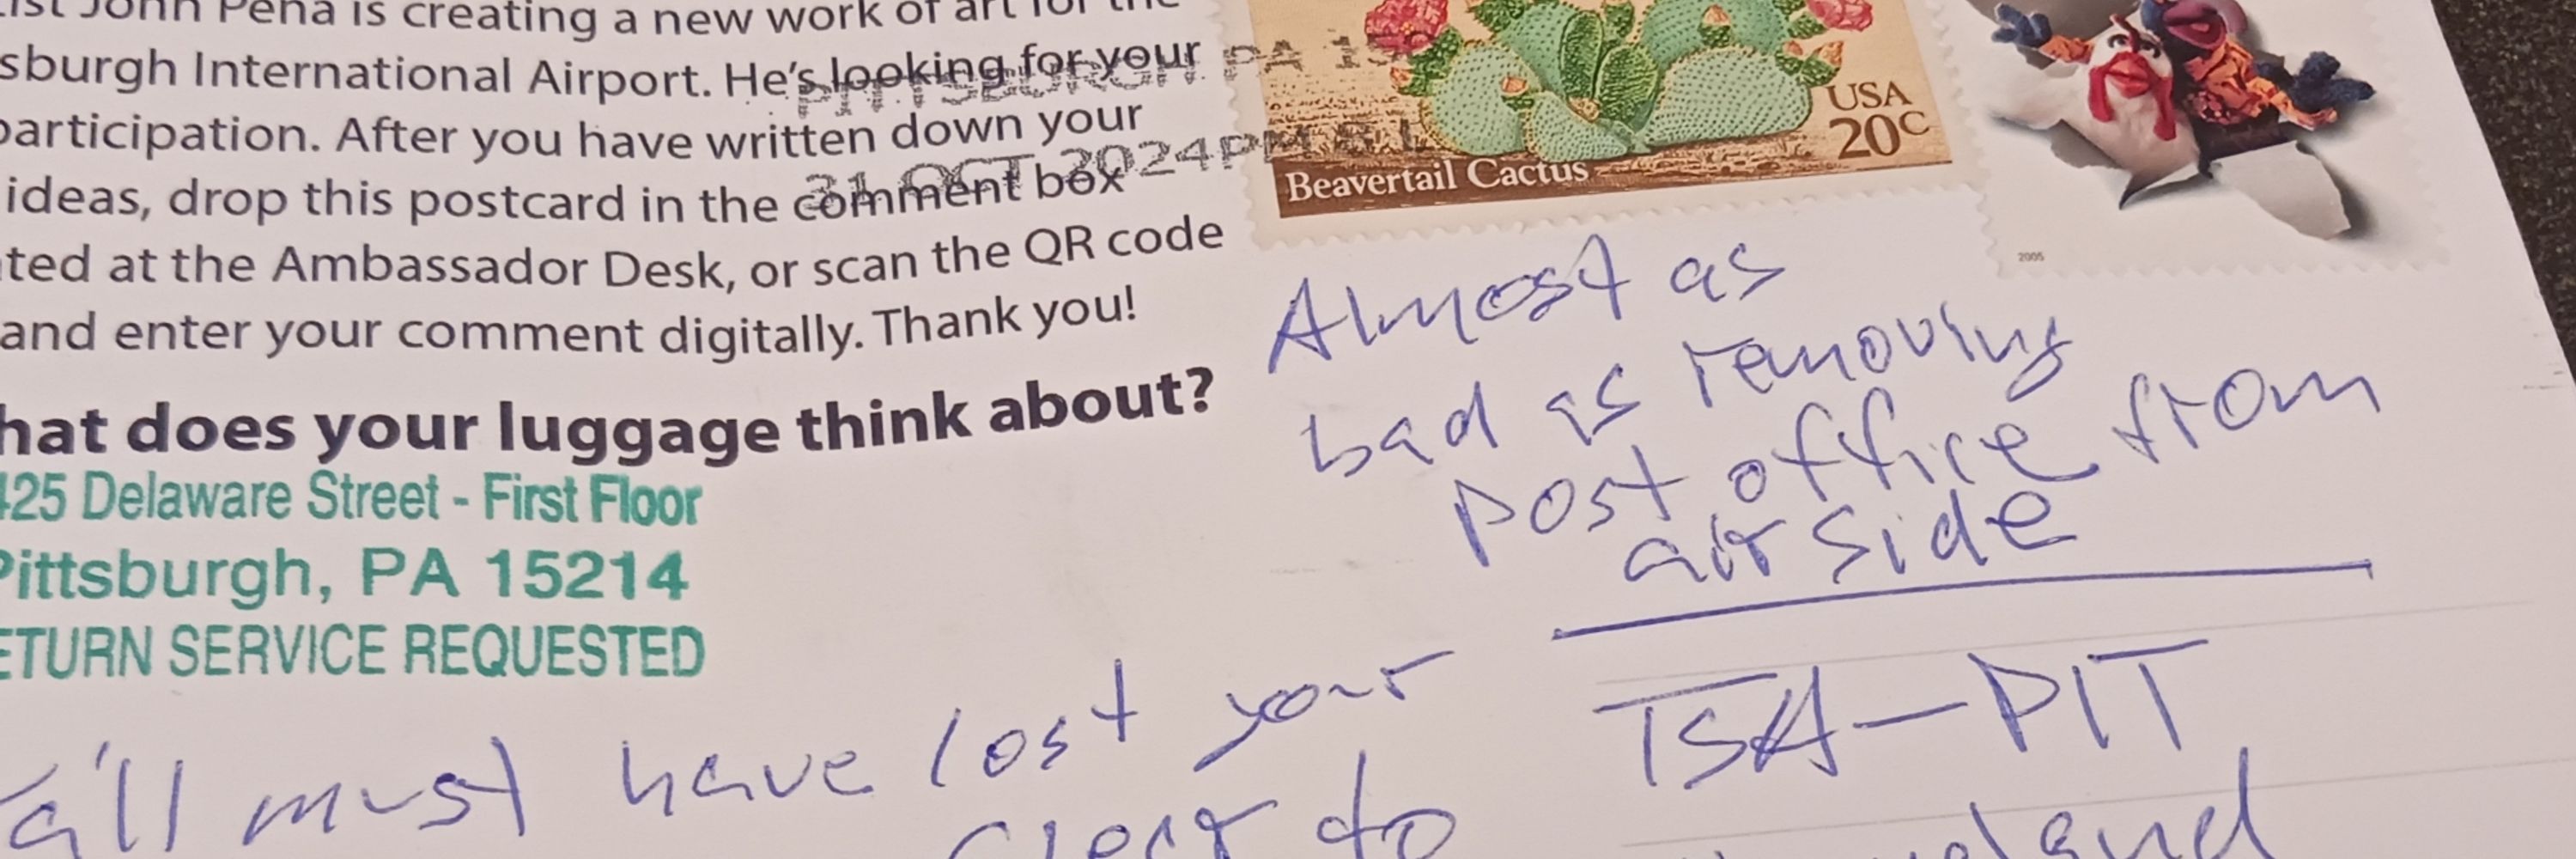 John Peña is creating a new work of art for the
sburgh International Airport. He's looking for your
participation. After you have written down your
ideas, drop this postcard in the comment box
ted at the Ambassador Desk, or scan the QR code
and enter your comment digitally. Thank you!
hat does your luggage think about?
425 Delaware Street - First Floor
Pittsburgh, PA 15214
ETURN SERVICE REQUESTED
PITTSBURGH PA
31 OCT 2024 PM
USA
20c
Beavertail Cactus
2005
Almost as
bad as removing
post office from
airside
TSA-PIT
Ya'll must have lost your
to